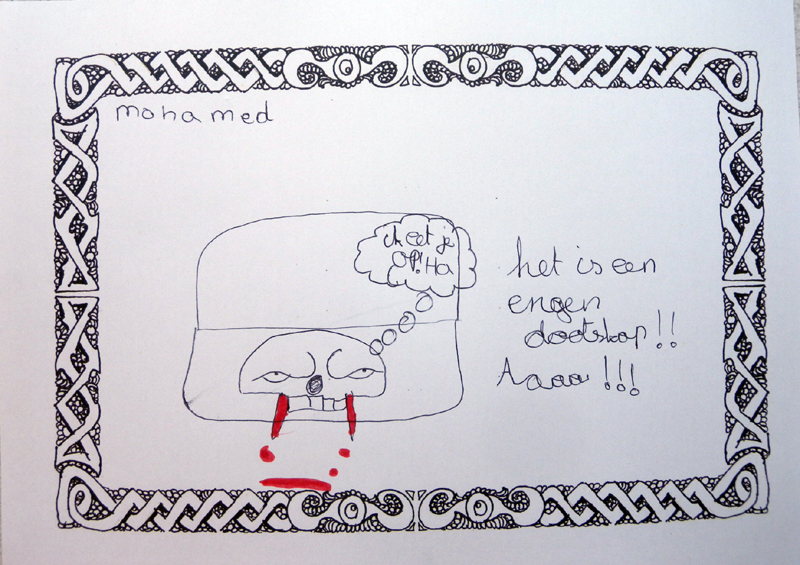 mohamed
ik eet je
OP! Ha
het is een
engen
dootskop!!
Aaaa!!!